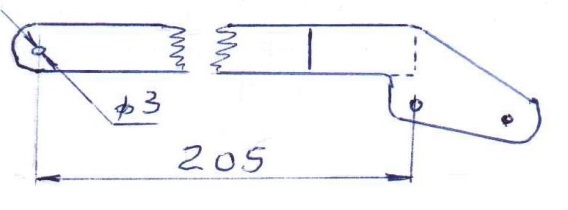 ϕ3
205